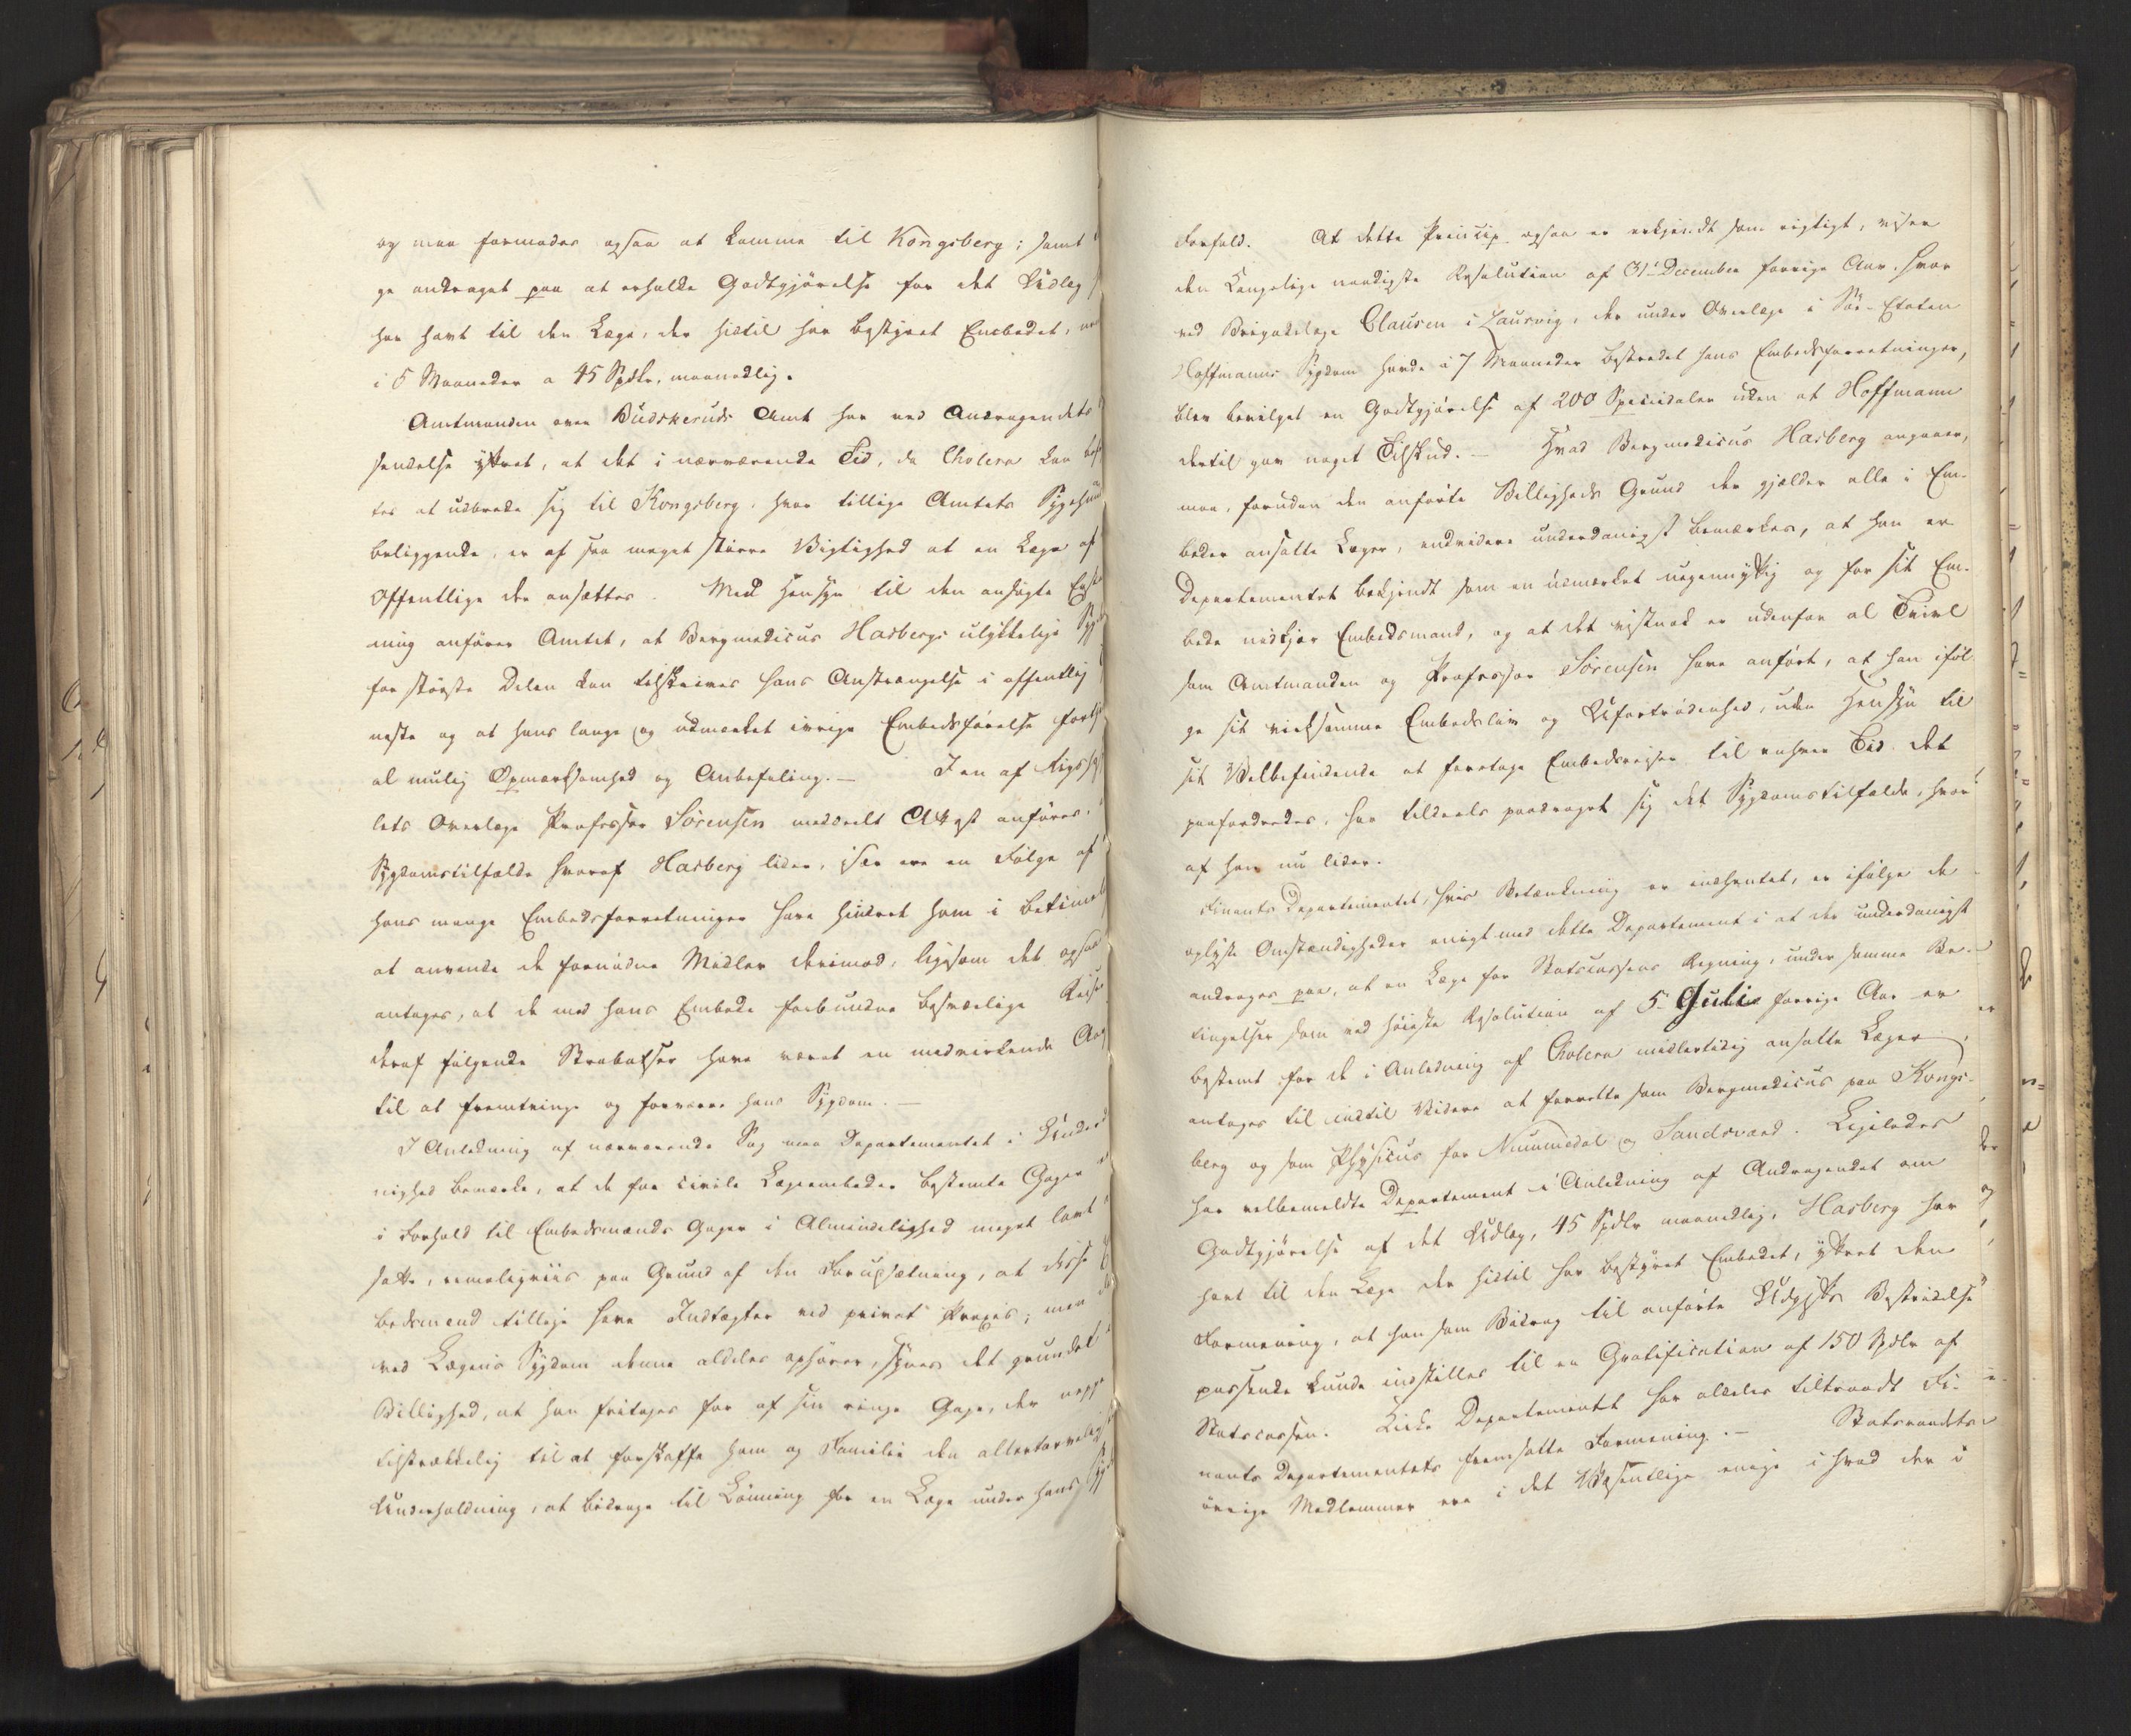 og maa formodes ogsaa at komme til Kongsberg; samt
ge andraget paa at erholde Godtgjørelse for det Udlæg
har havt til den Læge, der hidtil har bestyret Embedet,
i 5 Maaneder a 45 Spdlr. maanedlig.
Amtmanden over Buskeruds Amt har ved Andragendets
sendelse yttret, at det i nærværende Tid, da Cholera kan
tes at udbrede sig til Kongsberg, hvor tillige Amtets Sygehuus
beliggende, er af saa meget større Vigtighed at en Læge af
Offentlige der ansættes. Med Hensyn til den ansøgte
ning anfører Amtet, at Bergmedicus Hasbergs ulykkelige
for største Delen kan tilskrives hans Anstrængelse i offentlig
neste og at hans lange og udmærket ivrige Embedsførelse
al mulig Opmærksomhed og Anbefaling. — I en af Rigshospi
lets Overlæge Professor Sørensen meddeelt Attest anføres,
Sygdomstilfælde hvoraf Hasberg lider, især ere en Følge af
hans mange Embedsforretninger have hindret ham i betimel
at anvende de fornødne Midler derimod, ligesom det ogsaa
antages, at de med hans Embede forbundne besværlige Reiser
deraf følgende Strabatser have været en medvirkende Aar
til at fremtvinge og forværre hans Sygdom. —
I Anledning af nærværende Sag maa Departementet i Underda
nighed bemærke, at de for civile Lægeembeder bestemte Gager
i Forhold til Embedsmænds Gager i Almindelighed meget lavt
satte, rimeligviis paa Grund af den Forudsætning, at disse
bedsmænd tillige have Indtægter ved privat Praxis; men
ved Lægens Sygdom denne aldeles ophører, synes det grundet
Billighed, at han fritages for af sin ringe Gage, der neppe
tilstrækkelig til at forskaffe ham og Familie den allertarvelig
Underholdning, at bidrage til Lønning for en Læge under hans
Forfald. At dette Princip ogsaa er erkjendt som rigtigt, viser
den Kongelige naadigste Resolution af 31te December forrige Aar, hvor
ved Brigadelæge Clausen i Laurvig, der under Overlæge i Søe-Etaten
Hoffmanns Sygdom havde i 7 Maaneder bestredet hans Embedsforretninger,
blev bevilget en Godtgjørelse af 200 Speciedaler uden at Hoffmann
dertil gav noget Tilskud. — Hvad Bergmedicus Hasberg angaaer,
maa, foruden den anførte Billigheds Grund der gjælder alle i Em-
beder ansatte Læger, endvidere underdanigst bemærkes, at han er
Departementet bekjendt som en udmærket uegennyttig og for sit Em-
bede nidkjær Embedsmand, og at det vistnok er udenfor al Tvivl
som Amtmanden og Professor Sørensen have anført, at han iføl
ge sit virksomme Embedsliv og Ufortrødenhed, uden Hensyn til
sit Velbefindende at foretage Embedsreiser til enhver Tid det
paafordredes, har tildeels paadraget sig det Sygdomstilfælde, hvor
af han nu lider.
Finants Departementet, hvis Betænkning er indhentet, er ifølge de
oplyste Omstændigheder enigt med dette Departement i at der underdanigst
andrages paa, at en Læge for Statscassens Regning, under samme Be-
tingelser som ved høieste Resolution af 5 Juli forrige Aar er
bestemt for de i Anledning af Cholera midlertidig ansatte Læger,
antages til indtil Videre at forrette som Bergmedicus paa Kongs-
berg og som Physicus for Nummedal og Sandsværd. Ligeledes
har velbemeldte Departement i Anledning af Andragendet om
Godtgjørelse af det Udlæg, 45 Spdlr maanedlig, Hasberg har
havt til den Læge der hidtil har bestyret Embedet, yttret den
Formening, at han som Bidrag til anførte Udgifts Bestridelse
passende kunde indstilles til en Gratification af 150 Spdlr af
Statscassen. Kirke Departementet har aldeles tiltraadt Fi-
nants Departementets fremsatte Formening. — Statsraadets
øvrige Medlemmer ere i det Væsentlige enige i hvad der i